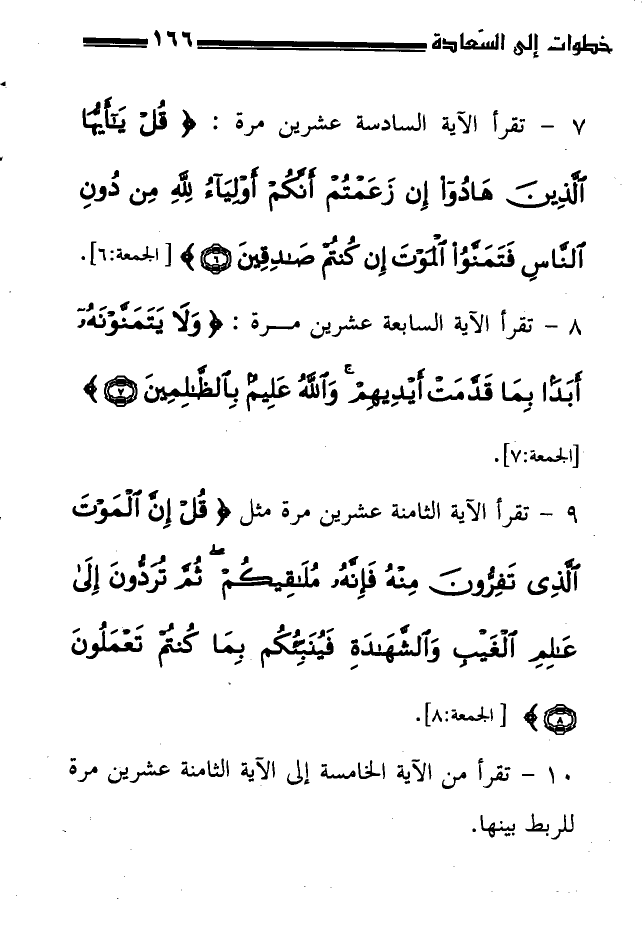 خطوات إلى السّعادة ١٦٦
٧ - تقرأ الآية السادسة عشرين مرة : ﴿ قُلْ يَٰٓأَيُّهَا
ٱلَّذِينَ هَادُوٓا۟ إِن زَعَمْتُمْ أَنَّكُمْ أَوْلِيَآءُ لِلَّهِ مِن دُونِ
ٱلنَّاسِ فَتَمَنَّوُا۟ ٱلْمَوْتَ إِن كُنتُمْ صَٰدِقِينَ ٦ ﴾ [الجمعة:٦].
٨ - تقرأ الآية السابعة عشرين مــرة : ﴿ وَلَا يَتَمَنَّوْنَهُۥٓ
أَبَدًۢا بِمَا قَدَّمَتْ أَيْدِيهِمْ ۚ وَٱللَّهُ عَلِيمٌۢ بِٱلظَّٰلِمِينَ ٧ ﴾
[الجمعة:٧].
٩ - تقرأ الآية الثامنة عشرين مرة مثل ﴿ قُلْ إِنَّ ٱلْمَوْتَ
ٱلَّذِى تَفِرُّونَ مِنْهُ فَإِنَّهُۥ مُلَٰقِيكُمْ ۖ ثُمَّ تُرَدُّونَ إِلَىٰ
عَٰلِمِ ٱلْغَيْبِ وَٱلشَّهَٰدَةِ فَيُنَبِّئُكُم بِمَا كُنتُمْ تَعْمَلُونَ
٨ ﴾ [الجمعة:٨].
١٠ - تقرأ من الآية الخامسة إلى الآية الثامنة عشرين مرة
للربط بينها.